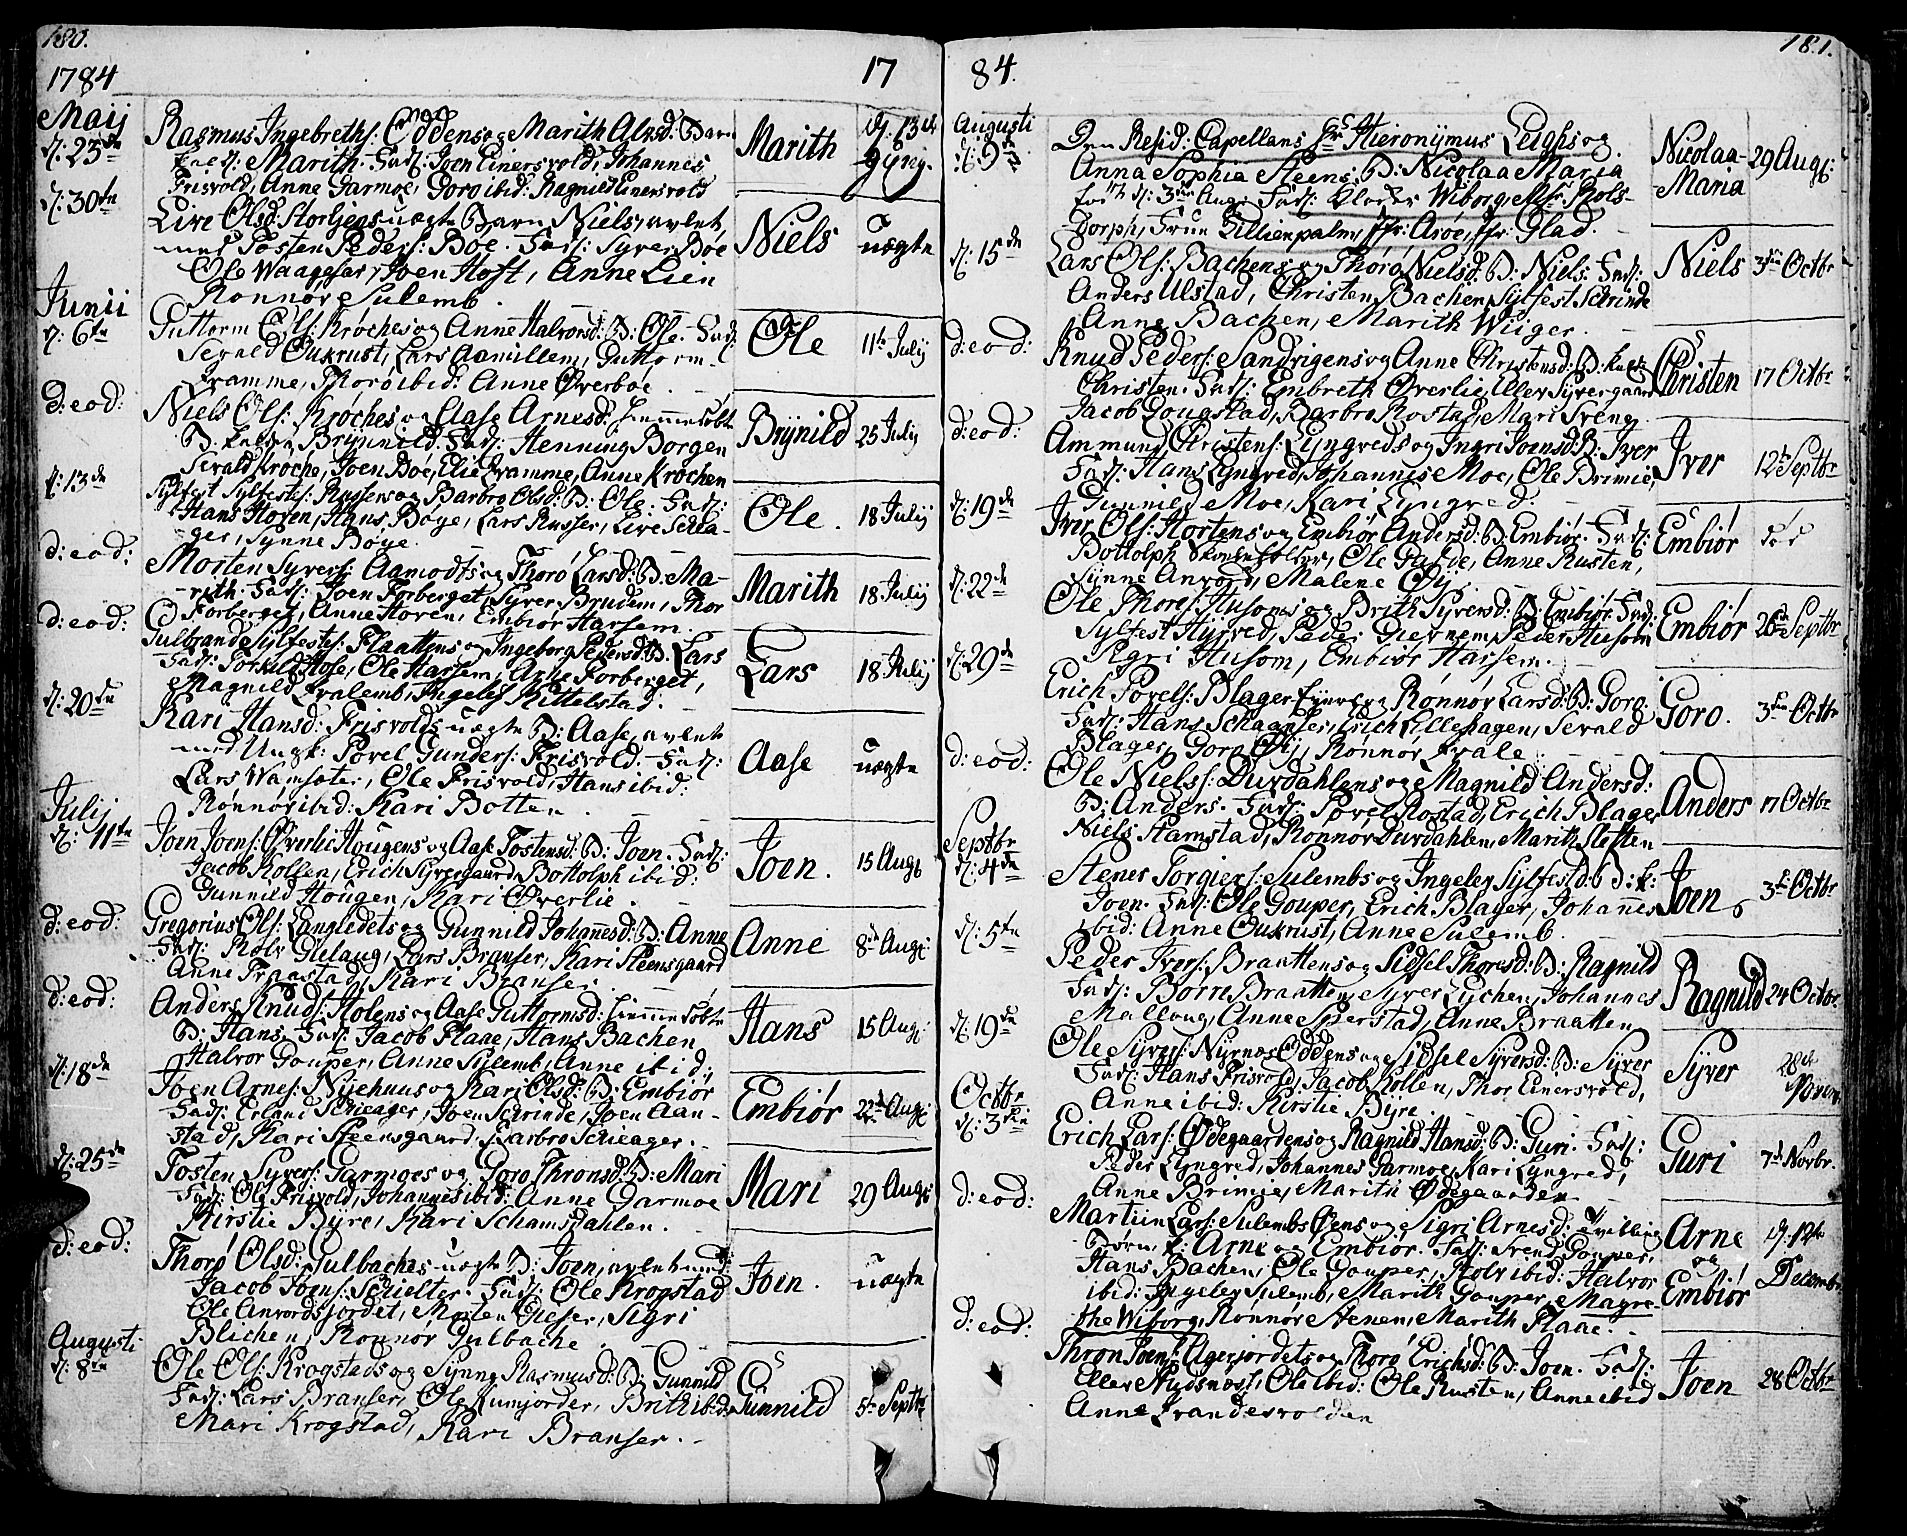 180.
1784
17
Maij
d: 23de
Rasmus Ingebreths: Oddens og Marith Olsd: Barn
Marith. Fad: Joen Einersvold, Johannes
Frisvold, Anne Garmoe, Goro ibid: Ragnild Einersvold
Marith
d: 30te
Live Olsd: uægte Barn Niels, avlet
med Tosten Peders: Bøe. Fad: Syver Bøe
Ole Waagesar, Joen Hoft, Anne Lien
Rønnøv Sulemb.
Niels
uægte
Junii
d: 6te
Guttorm Ols: Krøches og Anne Halvorsd: B: Ole. Fad:
Sevald Ouxrust, Lars Aamillem, Guttorm
Qvamme, Thorø ibid: Anne Øverboe.
Ole
11te Julij
d: eod:
Niels Ols: Krøches og Aase Arnesd: hiemmedøbte
B: Brynnild. Fad: Henning Borgen
Sevald Krøche, Joen Boe, Elie Qvamme, Anne Krøchen
Brynild
25 Julij
d: 13de
Sylfest Sylfests: Russer og Barbro Olsd: B: Ole. Fad:
Hans Hoven, Hans Bøye, Lars Russer, Live Schea-
ger, Synne Bøye.
Ole.
18 Julij
d: eod:
Morten Syvers: Aamodts og Thorø Larsd: B: Ma-
rith. Fad: Joen Forberget, Syver Brudem, Thor
Forberget, Anne Hoven, Embiør Harsem.
Marith
18 Julij
d: eod:
Gulbrand Sylfests: Plaattens og Ingeborg Pedersd: B: Lars
Fad: Torkild Hose, Ole Harsem, Arne Forberget,
Magnild Qvalemb, Ingeleff Kittelstad.
Lars
18 Julij
d: 20de
Kari Hansd: Frisvolds uægte B: Aase, avlet
med Ungk: Povel Gunders: Frisvold. Fad:
Lars Wamsøter, Ole Frisvold, Hans ibid:
Rønnøv ibid: Kari Botten.
Aase
uægte
Julij
d: 11te
Joen Joens: Øverlie Hougens og Aase Tostensd: B: Joen. Fad:
Jacob Kollen, Erich Syvergaard, Bottolph ibid:
Gunnild Hougen, Kari Øverlie.
Joen.
15 Aug:
d: eod:
Gregorius Ols: Langledets og Gunnild Johannesd: B: Anne
Fad: Rolv Gielaug, Lars Branser, Kari Steensgaard
Anne Fraastad, Kari Branser.
Anne
8de Aug:
d: eod:
Anders Knuds: Holens og Aase Guttormsd: hiemmedøbte
B: Hans. Fad: Jacob Flaae, Hans Bachen
Halvor Gouper, Anne Sulemb, Anne ibid:
Hans
15 Aug:
d: 18de
Joen Arnes: Nyehuus og Kari Olsd: B: Embiør
Fad: Erland Schieager, Joen Schrinde, Joen Aan-
stad, Kari Steensgaard, Barbro Schieager.
Embiør
22de Aug:
d: 25de
Tosten Syvers: Garmoes og Goro Thronsd: B: Mari
Fad: Ole Frisvold, Johannes ibid: Anne Garmoe
Kirstie Byre, Kari Schamsdahlen.
Mari
29 Aug:
d: eod:
Thorø Olsd: Gulbaches uægte B: Joen, avlet med
Jacob Joens: Schielter. Fad: Ole Krogstad
Ole Anvordsjordet, Morten Gieser, Sigri
Blichen, Rønnøv Gulbache.
Joen.
uægte
Augusti
d: 8de
Ole Ols: Krogstads og Synne Rasmusd: B: Gunnild
Fad: Lars Branser, Ole Kumjorder, Brith ibid:
Mari Krogstad, Kari Branser.
Gunnild
5te Septbr
181.
84.
Augusti
Den Resid: Capellans Hr Hieronymus Leighs og
Anna Sophia Steens B: Nicolaa Maria
d: 3die Aug: Fad: Klocker Wiborg, Mr: Rols-
dorph, Frue Gillienpalm, Jfr: Arøe, Jfr: Glad.
Nicolaa-
Maria
29 Aug:
d: 15de
Lars Ols: Bachens og Thorø Nielsd: B: Niels. Fad:
Anders Ulstad, Christen Bachen, Sylfest Schrinde
Anne Bachen, Marith Wiiger.
Niels
3die Octbr
d: eod:
Knud Peders: Sandrigens og Anne Christensd: B:
Christen. Fad: Embreth Øverlie, Eller Syvergaard
Jacob Gougstad, Barbro Rostad, Mari Sveng.
Christen
17 Octbr
d: eod:
Ammund Christens: Lyngveds og Ingri Joensd: B: Iver
Fad: Hans Lyngved, Johannes Moe, Ole Brimie,
Gunnild Moe, Kari Lyngved.
Iver
12te Septbr
d: 19de
Iver Ols: Hortens og Embiør Andersd: B: Embiør. Fad:
Bottolph, Ole Garde, Anne Rusten,
Synne Anvord, Malene Øij.
Embiør
d: 22de
Ole Thors: Husoms og Brith Syversd: B: Embiør. Fad:
Sylfest Hyrved, Peder Giernem, Peder Husom
Sigri Husom, Embiør Harsem.
Embiør
26de Septbr
d: 29de
Erich Povels: Blager og Rønnøv Larsd: B: Goro.
Fad: Hans Schaanser, Erich Lillehagen, Sevald
Blager, Goro Øij, Rønnøv Qvale.
Goro.
3die Octbr
d: eod:
Ole Niels: Durdahlens og Magnild Andersd:
B: Anders. Fad: Povel Rostad, Erich Blager
Niels Stamstad, Rønnøv Durdahlen, Marith Sletten
Anders
17 Octbr
Septbr
d: 4de
Stener Torgiers: Sulembs og Ingelev Sylfestd: B: k:
Joen. Fad: Ole Gouper, Erich Blager, Johannes
ibid: Anne Ouxrust, Anne Sulemb.
Joen
3die Octbr
d: 5te
Peder Ivers: Braattens og Sidsel Thoresd: B: Ragnild
Fad: Børre Braatten, Syver Lychen, Johannes
Malloug, Anne Sperstad, Anne Braatten
Ragnild
24 Octbr.
d: 19de
Ole Syvers: Nyrnæs Oddens og Sidsel Syversd: B: Syver
Fad: Hans Frisvold, Jacob Kollen, Thor Einersvold,
Anne ibid: Kirstie Byre.
Syver
Octbr
d: 3die
Erich Lars: Ødegaardens og Ragnild Hansd: B: Guri. Fad:
Peder Lyngved, Johannes Garmoe, Kari Lyngved,
Anne Brimie, Marith Ødegaarden
Guri
7de Novbr.
d: eod:
Martiin Lars: Sulembs Øens og Sigri Arnesd: Tvilling
Børn, k: Arne og Embiør. Fad: Svend Gouper,
Hans Bachen, Ole Gouper, Rolv ibid: Halvor
ibid: Ingelev Sulemb, Marith Gouper, Magre-
the Wiborg, Rønnøv Stenen, Marith Flaae.
Arne
og
Embiør
d: 12te
Decembr
d: eod:
Thron Joens: Agerjordets og Thorø Erichsd: B: Joen. Fad:
Eller Nydsnæss, Ole ibid: Ole Rusten, Anne ibid
Anne Qvandesvolden
Joen
28 Octbr